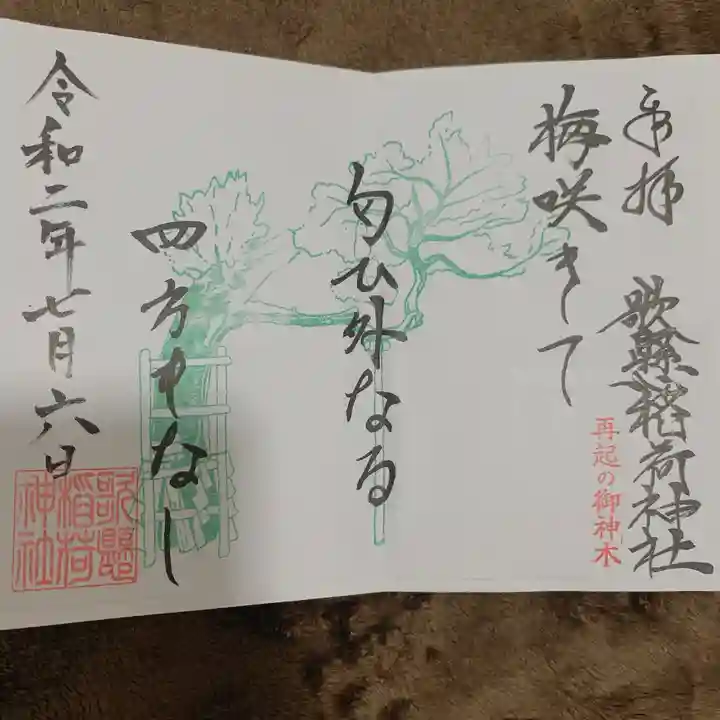 奉拝
歌懸稲荷神社
再起の御神木
梅咲きて
匂ひ外なる
四方もなし
令和二年七月六日
歌懸
稲荷
神社